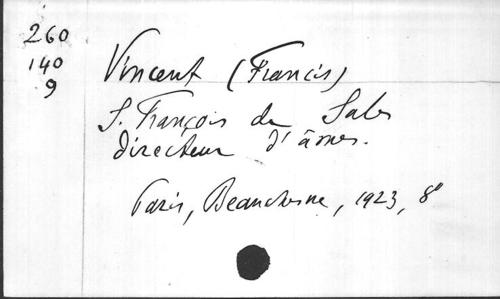 260
140
9
Vincent (Francis)
S. François de Sales
directeur d'âmes.
Paris, Beauchesne, 1923, 8°